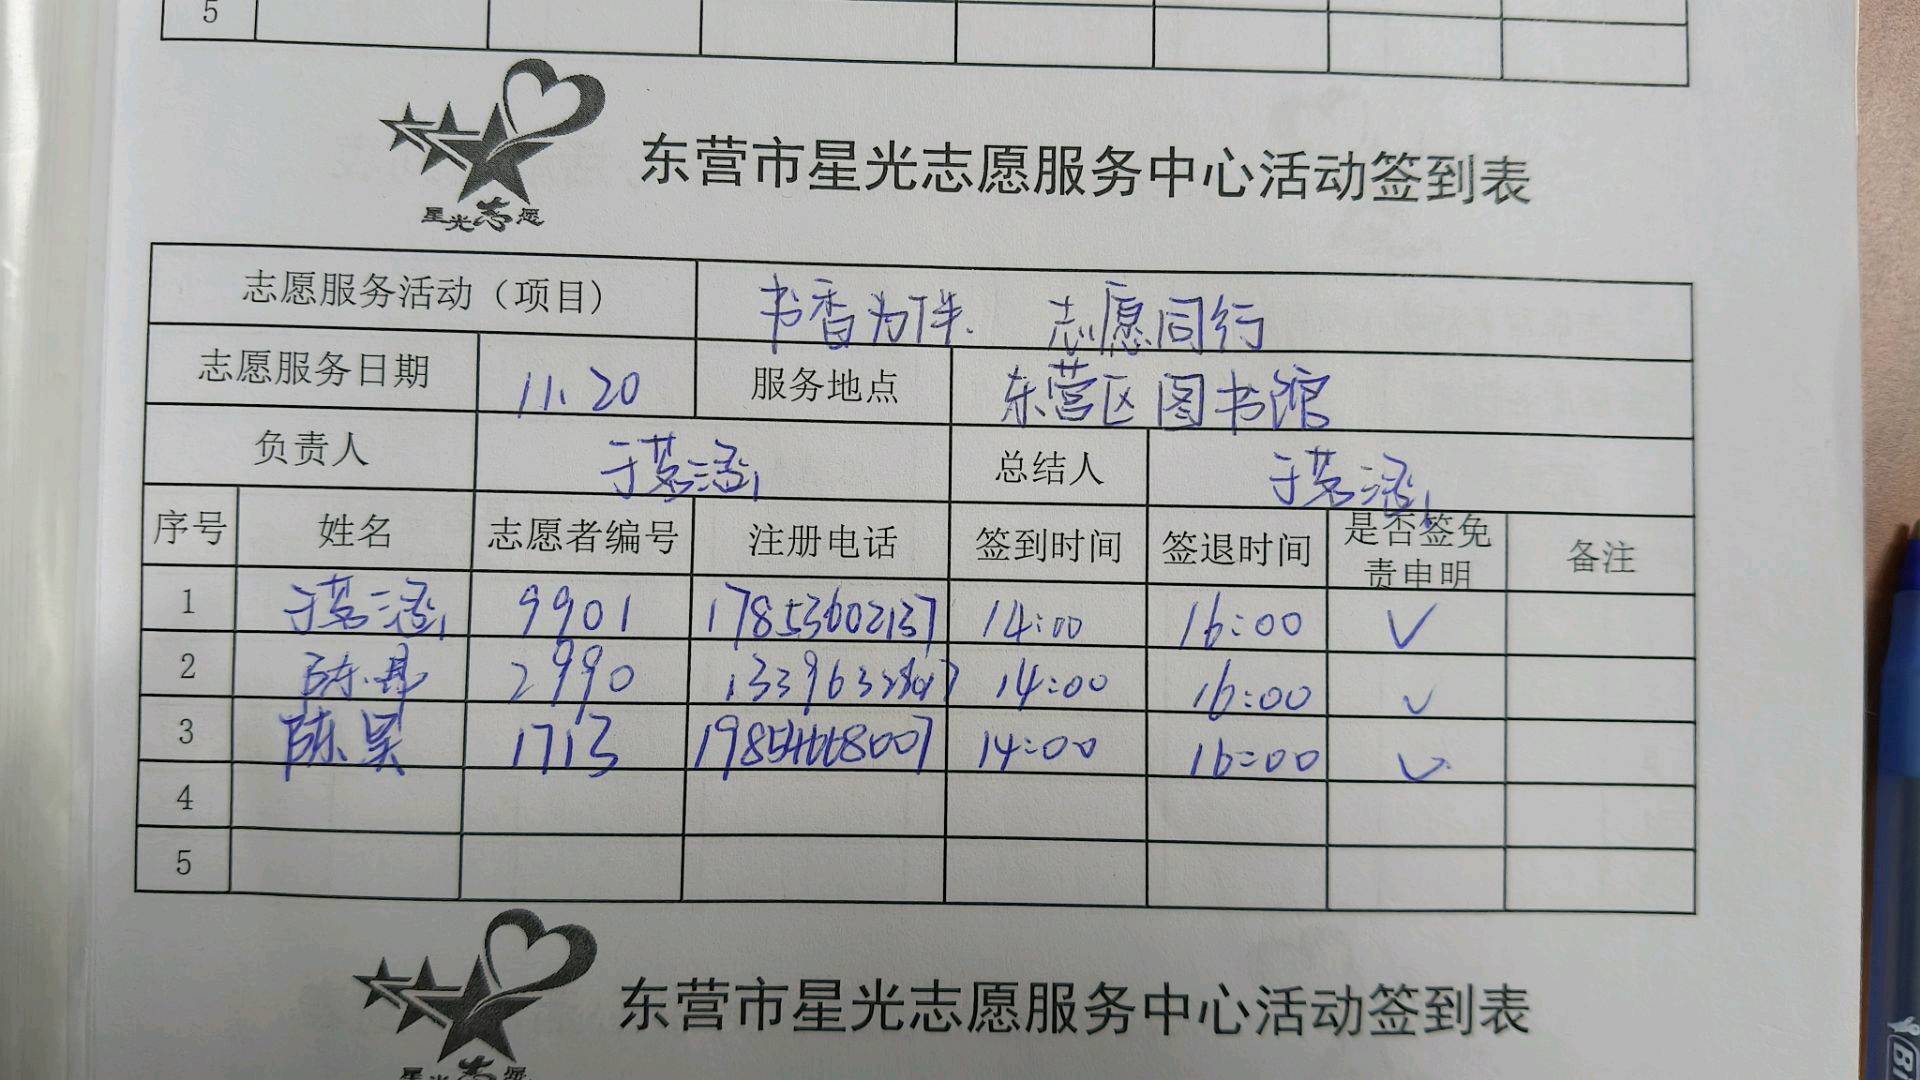 5
东营市星光志愿服务中心活动签到表
星光志愿
志愿服务活动（项目） 书香为伴. 志愿同行
志愿服务日期 11.20 服务地点 东营区图书馆
负责人 于茗涵 总结人 于茗涵
序号 姓名 志愿者编号 注册电话 签到时间 签退时间 是否签免责申明 备注
1 于茗涵 9901 17853602137 14:00 16:00 ✓
2 陈 2990 14:00 16:00 ✓
3 陈昊 1713 14:00 16:00 ✓
4
5
东营市星光志愿服务中心活动签到表
星光志愿